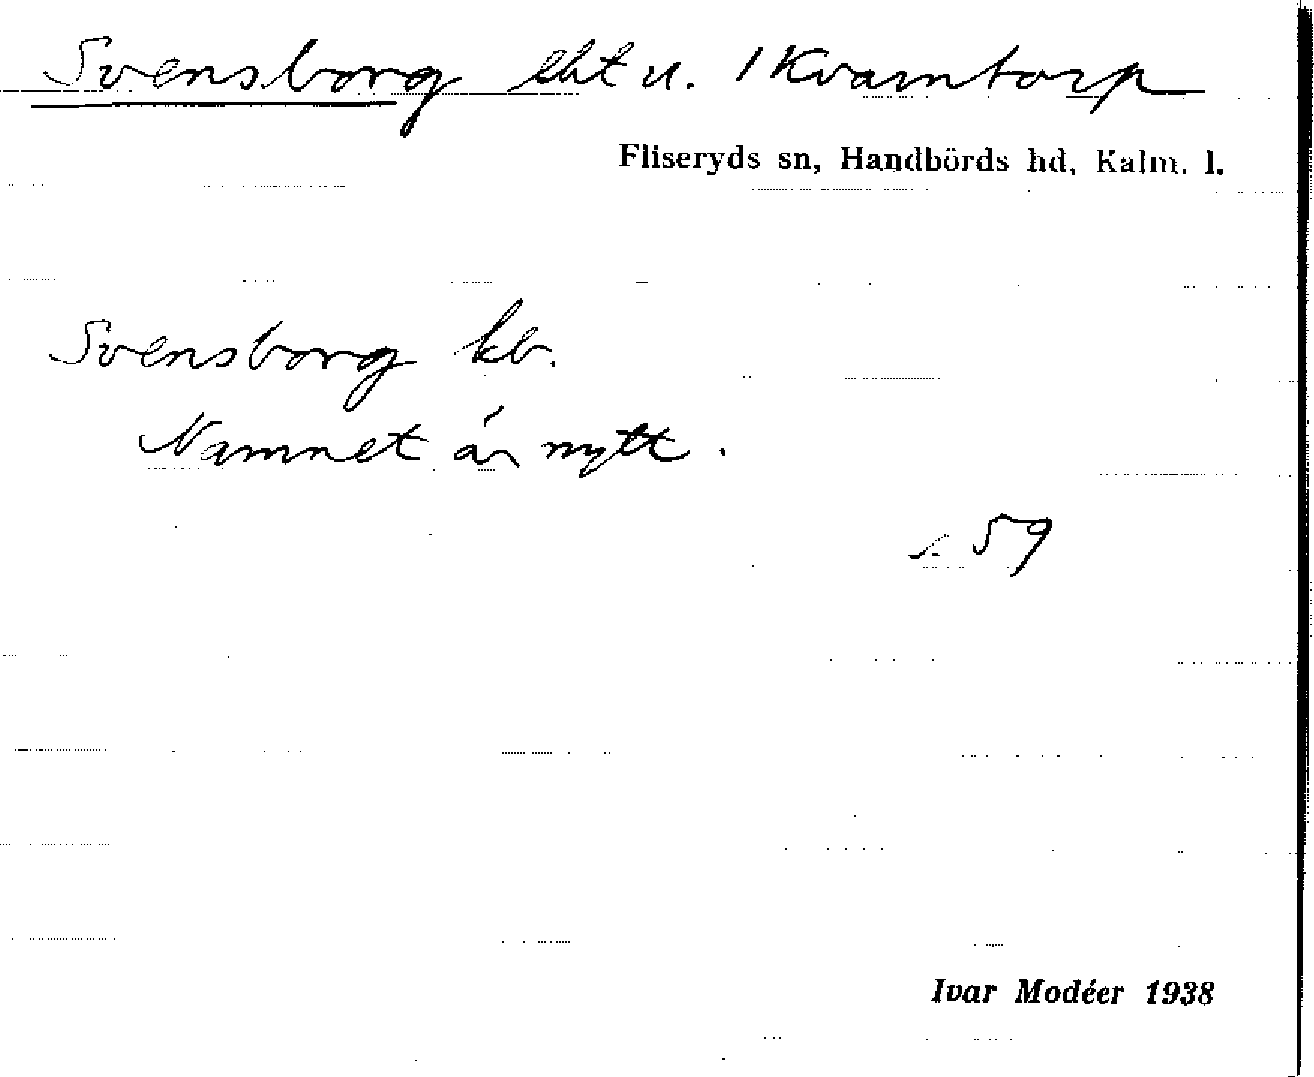 Svensborg lht u. 1 Kvarntorp
Fliseryds sn, Handbörds hd, Kalm. l.
Svensborg kb.
Namnet är nytt.
s. 59
Ivar Modéer 1938